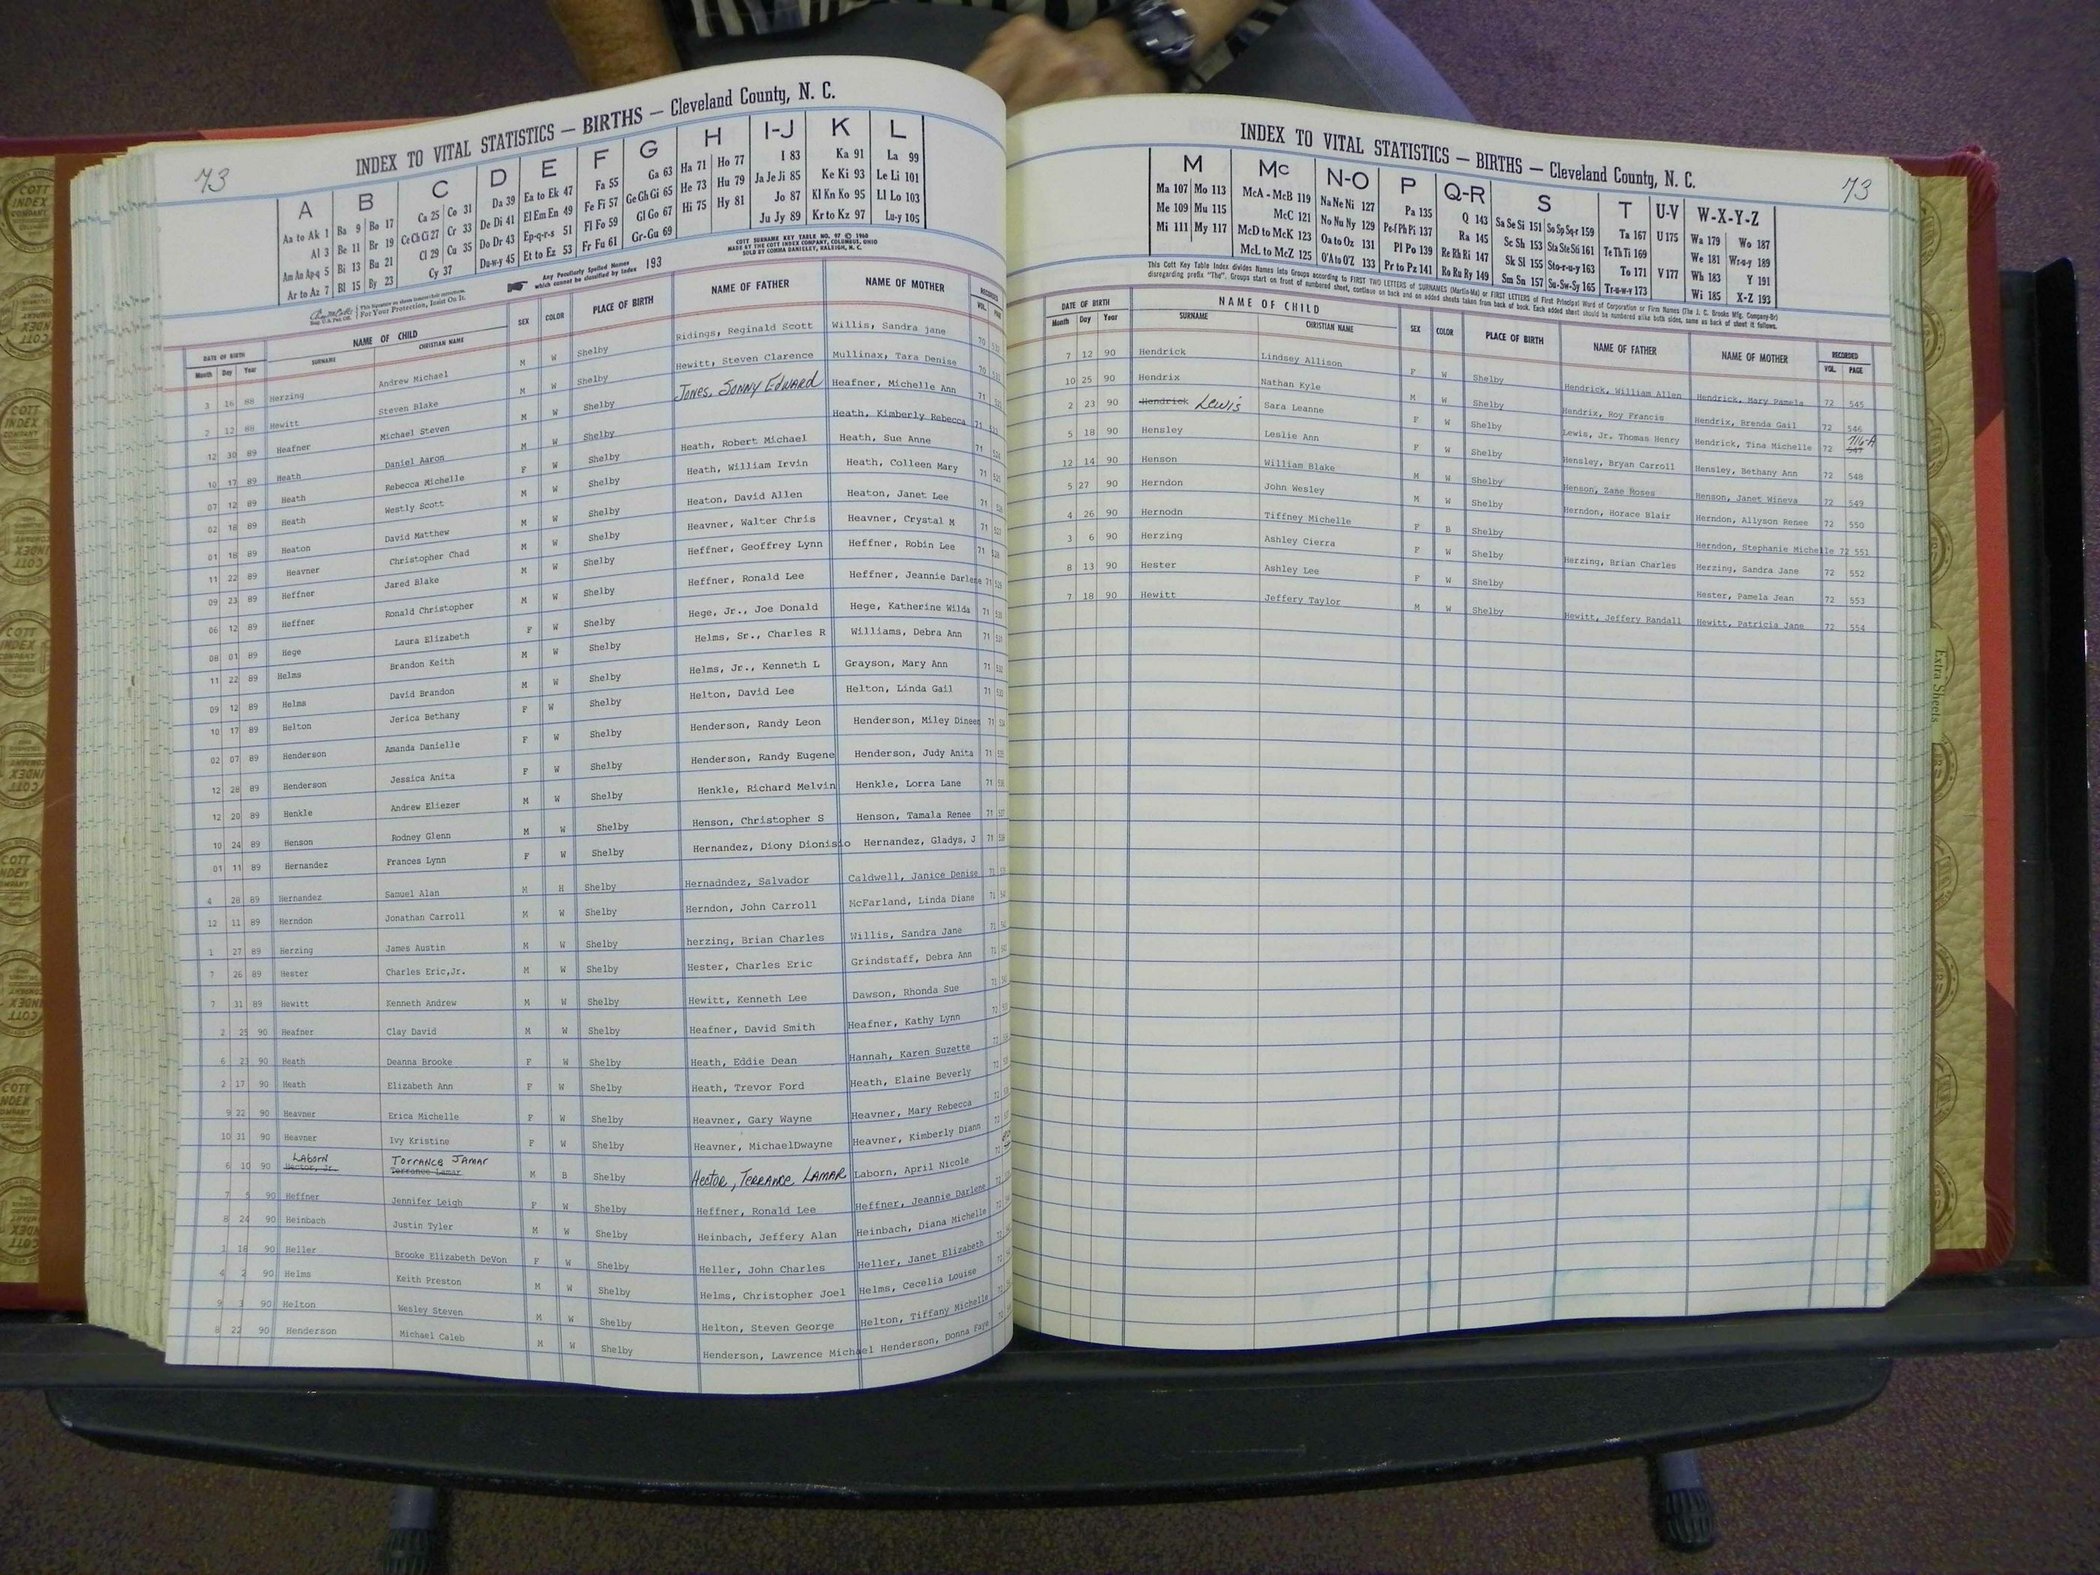 73
INDEX TO VITAL STATISTICS — BIRTHS — Cleveland County, N. C.
A B C D E F G H I-J K L
Aa to Ak 1 Ba 9 Bo 17 Ca 25 Co 31 Da 39 Ea to Ek 47 Fa 55 Ga 63 Ha 71 Ho 77 I 83 Ka 91 La 99
Al 3 Be 11 Br 19 Ce Ch Ci 27 Cr 33 De Di 41 El Em En 49 Fe Fi 57 Ge Gh Gi 65 He 73 Hu 79 Ja Je Ji 85 Ke Ki 93 Le Li 101
Am An Ap-q 5 Bi 13 Bu 21 Cl 29 Cu 35 Do Dr 43 Ep-q-r-s 51 Fl Fo 59 Gl Go 67 Hi 75 Hy 81 Jo 87 Kl Kn Ko 95 Ll Lo 103
Ar to Az 7 Bl 15 By 23 Cy 37 Du-w-y 45 Et to Ez 53 Fr Fu 61 Gr-Gu 69 Ju Jy 89 Kr to Kz 97 Lu-y 105
COTT SURNAME KEY TABLE NO. 97 © 1960
MADE BY THE COTT INDEX COMPANY, COLUMBUS, OHIO
SOLD BY COMMA DANIELEY, RALEIGH, N. C.
Any Peculiarly Spelled Names which cannot be classified by Index 193
For Your Protection, Insist On It.
DATE OF BIRTH NAME OF CHILD SEX COLOR PLACE OF BIRTH NAME OF FATHER NAME OF MOTHER RECORDED
Month Day Year SURNAME CHRISTIAN NAME VOL. PAGE
3 16 88 Herzing Andrew Michael M W Shelby Ridings, Reginald Scott Willis, Sandra jane 70
2 12 88 Hewitt Steven Blake M W Shelby Hewitt, Steven Clarence Mullinax, Tara Denise 70
12 30 89 Heafner Michael Steven M W Shelby Jones, Sonny Edward Heafner, Michelle Ann 71
10 17 89 Heath Daniel Aaron M W Shelby Heath, Kimberly Rebecca 71
07 12 89 Heath Rebecca Michelle F W Shelby Heath, Robert Michael Heath, Sue Anne 71
02 18 89 Heath Westly Scott M W Shelby Heath, William Irvin Heath, Colleen Mary 71
01 18 89 Heaton David Matthew M W Shelby Heaton, David Allen Heaton, Janet Lee 71
11 22 89 Heavner Christopher Chad M W Shelby Heavner, Walter Chris Heavner, Crystal M 71
09 23 89 Heffner Jared Blake M W Shelby Heffner, Geoffrey Lynn Heffner, Robin Lee 71
06 12 89 Heffner Ronald Christopher M W Shelby Heffner, Ronald Lee Heffner, Jeannie Darlene 71
08 01 89 Hege Laura Elizabeth F W Shelby Hege, Jr., Joe Donald Hege, Katherine Wilda 71
11 22 89 Helms Brandon Keith M W Shelby Helms, Sr., Charles R Williams, Debra Ann 71
09 12 89 Helms David Brandon M W Shelby Helms, Jr., Kenneth L Grayson, Mary Ann 71
10 17 89 Helton Jerica Bethany F W Shelby Helton, David Lee Helton, Linda Gail 71
02 07 89 Henderson Amanda Danielle F W Shelby Henderson, Randy Leon Henderson, Miley Dineen 71
12 28 89 Henderson Jessica Anita F W Shelby Henderson, Randy Eugene Henderson, Judy Anita 71
12 20 89 Henkle Andrew Eliezer M W Shelby Henkle, Richard Melvin Henkle, Lorra Lane 71
10 24 89 Henson Rodney Glenn M W Shelby Henson, Christopher S Henson, Tamala Renee 71
01 11 89 Hernandez Frances Lynn F W Shelby Hernandez, Diony Dionisio Hernandez, Gladys, J 71
4 28 89 Hernandez Samuel Alan M H Shelby Hernadndez, Salvador Caldwell, Janice Denise 71
12 11 89 Herndon Jonathan Carroll M W Shelby Herndon, John Carroll McFarland, Linda Diane 71
1 27 89 Herzing James Austin M W Shelby herzing, Brian Charles Willis, Sandra Jane 71
7 26 89 Hester Charles Eric,Jr. M W Shelby Hester, Charles Eric Grindstaff, Debra Ann 71
7 31 89 Hewitt Kenneth Andrew M W Shelby Hewitt, Kenneth Lee Dawson, Rhonda Sue 71
2 25 90 Heafner Clay David M W Shelby Heafner, David Smith Heafner, Kathy Lynn 72
6 23 90 Heath Deanna Brooke F W Shelby Heath, Eddie Dean Hannah, Karen Suzette 72
2 17 90 Heath Elizabeth Ann F W Shelby Heath, Trevor Ford Heath, Elaine Beverly 72
9 22 90 Heavner Erica Michelle F W Shelby Heavner, Gary Wayne Heavner, Mary Rebecca 72
10 31 90 Heavner Ivy Kristine F W Shelby Heavner, MichaelDwayne Heavner, Kimberly Diann 72
Laborn Torrance Jamar
6 10 90 Hector, Jr. Terrance Lamar M B Shelby Hector, Terrance Lamar Laborn, April Nicole 72
7 5 90 Heffner Jennifer Leigh F W Shelby Heffner, Ronald Lee Heffner, Jeannie Darlene 72
8 24 90 Heinbach Justin Tyler M W Shelby Heinbach, Jeffery Alan Heinbach, Diana Michelle 72
1 18 90 Heller Brooke Elizabeth DeVon F W Shelby Heller, John Charles Heller, Janet Elizabeth 72
4 2 90 Helms Keith Preston M W Shelby Helms, Christopher Joel Helms, Cecelia Louise 72
9 3 90 Helton Wesley Steven M W Shelby Helton, Steven George Helton, Tiffany Michelle 72
8 22 90 Henderson Michael Caleb M W Shelby Henderson, Lawrence Michael Henderson, Donna Faye 72
INDEX TO VITAL STATISTICS — BIRTHS — Cleveland County, N. C.
73
M Mc N-O P Q-R S T U-V W-X-Y-Z
Ma 107 Mo 113 McA - McB 119 Na Ne Ni 127 Pa 135 Q 143 Sa Se Si 151 So Sp Sq-r 159 Ta 167 U 175 Wa 179 Wo 187
Me 109 Mu 115 McC 121 No Nu Ny 129 Pe-f Ph Pi 137 Ra 145 Sc Sh 153 Sta Ste Sti 161 Te Th Ti 169 We 181 Wr-u-y 189
Mi 111 My 117 McD to McK 123 Oa to Oz 131 Pl Po 139 Re Rh Ri 147 Sk Sl 155 Sto-r-u-y 163 To 171 V 177 Wh 183 Y 191
McL to McZ 125 O'A to O'Z 133 Pr to Pz 141 Ro Ru Ry 149 Sm Sn 157 Su-Sw-Sy 165 Tr-u-w-y 173 Wi 185 X-Z 193
This Cott Key Table Index divides Names into Groups according to FIRST TWO LETTERS of SURNAMES (Martin-Ma) or FIRST LETTERS of First Principal Word of Corporation or Firm Names (The J. C. Brooks Mfg. Company-Br)
disregarding prefix "The". Groups start on front of numbered sheet, continue on back and on added sheets taken from back of book. Each added sheet should be numbered alike both sides, same as back of sheet it follows.
DATE OF BIRTH NAME OF CHILD SEX COLOR PLACE OF BIRTH NAME OF FATHER NAME OF MOTHER RECORDED
Month Day Year SURNAME CHRISTIAN NAME VOL. PAGE
7 12 90 Hendrick Lindsey Allison F W Shelby Hendrick, William Allen Hendrick, Mary Pamela 72 545
10 25 90 Hendrix Nathan Kyle M W Shelby Hendrix, Roy Francis Hendrix, Brenda Gail 72 546
2 23 90 Hendrick Lewis Sara Leanne F W Shelby Lewis, Jr. Thomas Henry Hendrick, Tina Michelle 72 716-A 547
5 18 90 Hensley Leslie Ann F W Shelby Hensley, Bryan Carroll Hensley, Bethany Ann 72 548
12 14 90 Henson William Blake M W Shelby Henson, Zane Roses Henson, Janet Wineva 72 549
5 27 90 Herndon John Wesley M W Shelby Herndon, Horace Blair Herndon, Allyson Renee 72 550
4 26 90 Hernodn Tiffney Michelle F B Shelby Herndon, Stephanie Michelle 72 551
3 6 90 Herzing Ashley Cierra F W Shelby Herzing, Brian Charles Herzing, Sandra Jane 72 552
8 13 90 Hester Ashley Lee F W Shelby Hester, Pamela Jean 72 553
7 18 90 Hewitt Jeffery Taylor M W Shelby Hewitt, Jeffery Randall Hewitt, Patricia Jane 72 554
Extra Sheets
COTT INDEX COMPANY